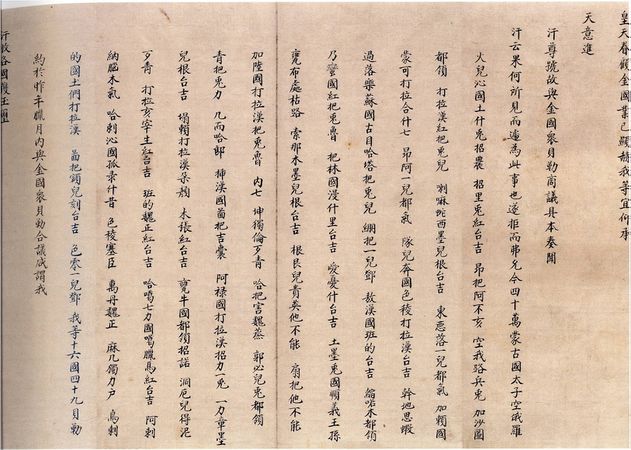 皇天眷顧金國業已顯赫我等宜仰承
天意進
汗尊號故與金國衆貝勒商議具本奏聞
汗云果何所見而遽為此事也遂拒而弗允今四十萬蒙古國太子空俄羅
火兒沁國土什兎招農 招里兎紅台吉 昂把阿不亥 空我路兵兎 加沙圖
都領 打拉漢紅把兎兒 喇嘛蛇西墨兒根台吉 東惡落一兒都氣 加賴國
蒙可打拉合什七 昂阿一兒都氣 隊兒奔國色稜打拉漢台吉 幹地思蝦
過落欒蘇國古目哈塔把兎兒 綳把一兒鄧 敖漢國班的台吉 瑣喏木都領
乃蠻國紅把兎魯 把林國漫什里台吉 愛憂什台吉 土墨兎國順義王孫
寛布處枯路 索那木墨兒根台吉 根良兒責英他不能 扇把他不能
加陸國打拉漢把兎魯 内七 坤獨倫歹青 哈把害魏蒸 郭必兒兎都領
青把兎力 几而哈郎 掉漢國菌把吉囊 阿禄國打拉漢招力兎 一力章墨
兒根台吉 塌賴打拉漢朶顔 木張紅台吉 寛牛國都領招諾 洞厄兒得泥
歹青 打拉亥宰生紅台吉 班的魏正紅台吉 哈喝七力國喝臘烏紅台吉 阿剌
納腦木氣 哈剌沁國孤素什昔 色稜塞臣 萬丹魏正 麻几鐲力户 烏剌
的國土們打拉漢 菌把鐲兒刻台吉 色零一兒鄧 我等十六國四十九貝勒
約於昨年臘月内與金國衆貝勒合議咸謂我